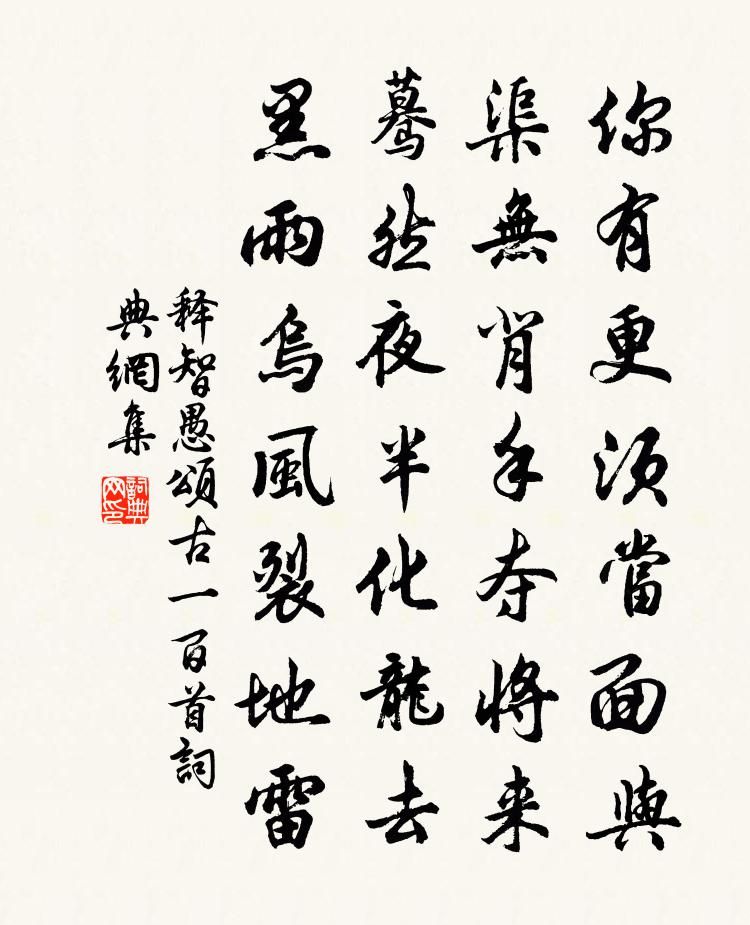 你有更須當面與
渠無背手夺將来
驀然夜半化龍去
黑雨烏風裂地雷
释智愚頌古一百首詞
典網集
詞典网印